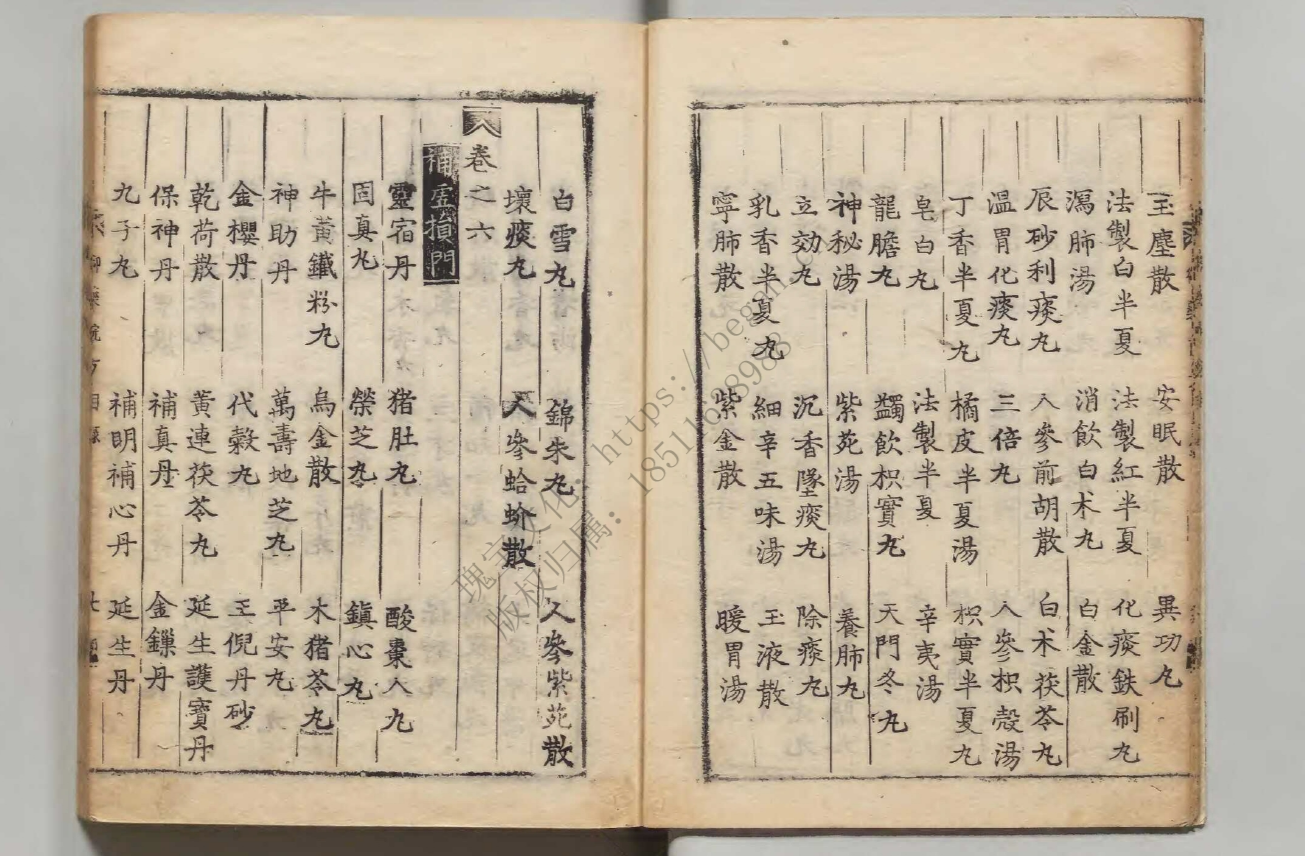 玉塵散 安眠散 異功丸
法製白半夏 法製紅半夏 化痰鉄刷丸
瀉肺湯 消飲白朮丸 白金散
辰砂利痰丸 人參前胡散 白朮茯苓丸
溫胃化痰丸 三倍丸 人參枳殼湯
丁香半夏丸 橘皮半夏湯 枳實半夏丸
皂白丸 法製半夏 辛夷湯
龍膽丸 蠲飲枳實丸 天門冬丸
神秘湯 紫苑湯 養肺丸
立効丸 沉香墜痰丸 除痰丸
乳香半夏丸 細辛五味湯 玉液散
寧肺散 紫金散 暖胃湯
白雪丸 錦朱丸 人參紫苑散
壞痰丸 人參蛤蚧散
卷之六
補虛損門
靈宿丹 猪肚丸 酸棗人丸
固真丸 榮芝丸 鎮心丸
牛黃鐵粉丸 烏金散 木猪苓丸
神助丹 萬壽地芝丸 平安丸
金櫻丹 代穀丸 王倪丹砂
乾荷散 黃連茯苓丸 延生護寶丹
保神丹 補真丹 金鏁丹
九子丸 補明補心丹 延生丹
御藥院方目錄
瑰宝文化: https://began
版权归属: 18511688983